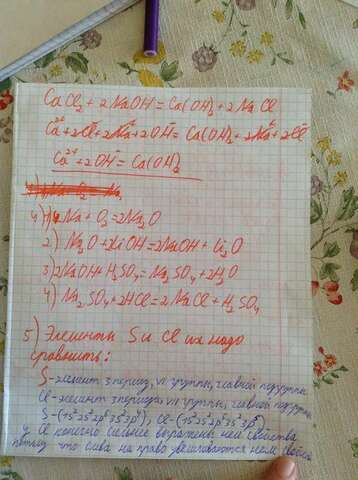 CaCl₂ + 2NaOH = Ca(OH)₂ + 2NaCl
Ca²⁺ + 2Cl⁻ + 2Na⁺ + 2OH⁻ = Ca(OH)₂ + 2Na⁺ + 2Cl⁻
Ca²⁺ + 2OH⁻ = Ca(OH)₂
4) 1) 4Na + O₂ = 2Na₂O
2) Na₂O + 2LiOH = 2NaOH + Li₂O
3) 2NaOH + H₂SO₄ = Na₂SO₄ + 2H₂O
4) Na₂SO₄ + 2HCl = 2NaCl + H₂SO₄
5) Элементы S и Cl их надо
сравнить:
S - элемент 3 период, VI группы, главной подгруппы
Cl - элемент 3 периода, VII группы, главной подгруппы
S - (1s² 2s² 2p⁶ 3s² 3p⁴), Cl - (1s² 2s² 2p⁶ 3s² 3p⁵)
у Cl конечно сильнее выражены нем свойства
потому что слева на право увеличиваются нем свойства